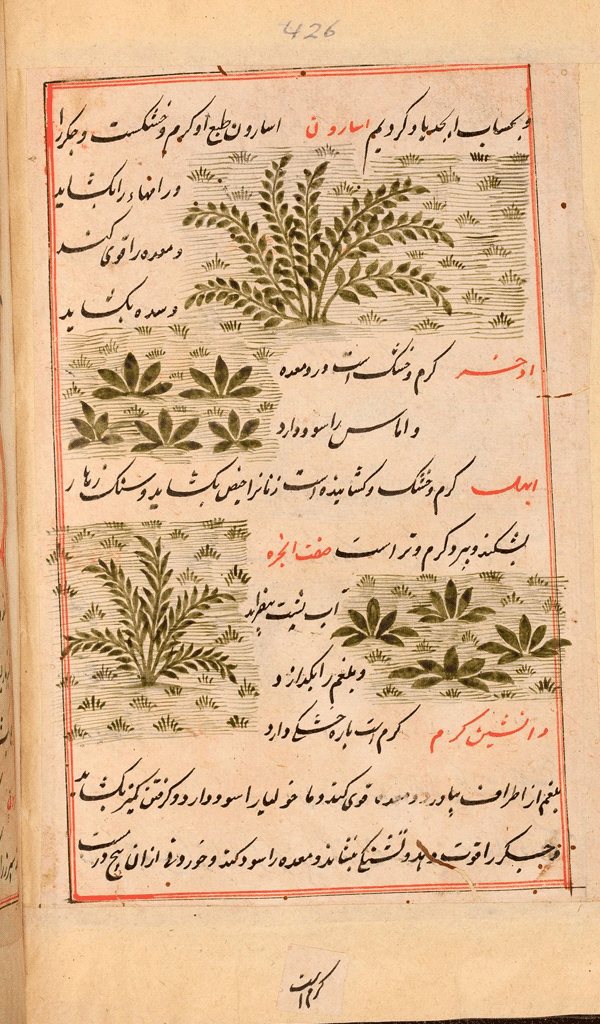 426
و بحساب ابجد یاد کردیم اسارون اسارون طبع او کرم و خشکست و جکر را
و راهها را بکشاید
و معده را قوی کند
و سده بکشاید
اذخر کرم و خشک است و رو معده
و اماس را سود دارد
ابهل کرم و خشک و کشاینده است زنانرا حیض بکشاید و سنک زهار
بشکند و بیرو کرم و تر است
آب پشت بیفزاید
و بلغم را بکدازد
کرم است باره خشکی دارد
بلغم از اطراف بیاورد و معده قوی کند و ما خولیا را سود دارد و کرفتن کمیز بکشاید
و جکر را قوت دهد و تشنکی بنشاند و معده را سود کند و خوردنی از آن پنج درست
کرم است